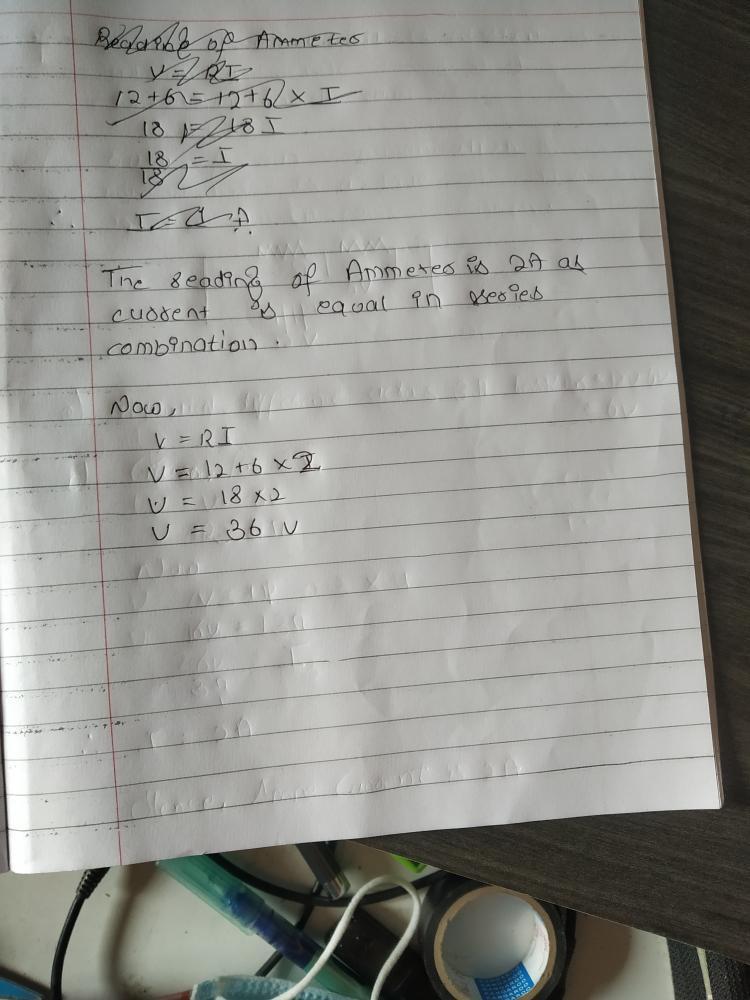 Reading of Ammeter
V = RI
12+6 = 12+6 × I
18 = 18 I
18 = I
18
∴ I = 1 A.
The reading of Ammeter is 2A as
current is equal in series
combination.
Now,
V = RI
V = 12+6 × 2
V = 18 × 2
V = 36 V